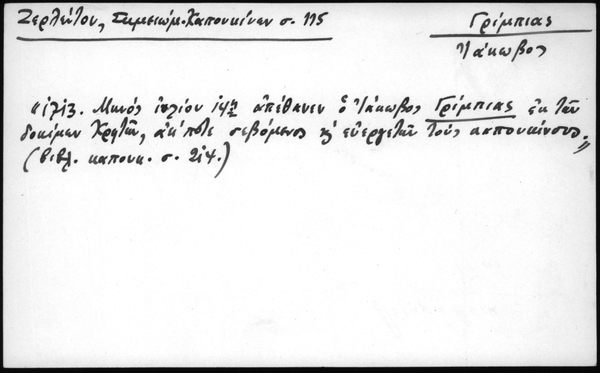 Ζερλέντου, Σημειώμ. Καπουκίνων σ. 115
Γρίμπιας
Ἰάκωβος
"1713. Μηνός ἰουλίου 14ῃ ἀπέθανεν ὁ Ἰάκωβος Γρίμπιας ἐκ τῶν
δοκίμων Κρητῶν, ἀείποτε σεβόμενος κ' εὐεργετῶν τούς καπουκίνους"
(βιβλ. καπουκ. σ. 214.)